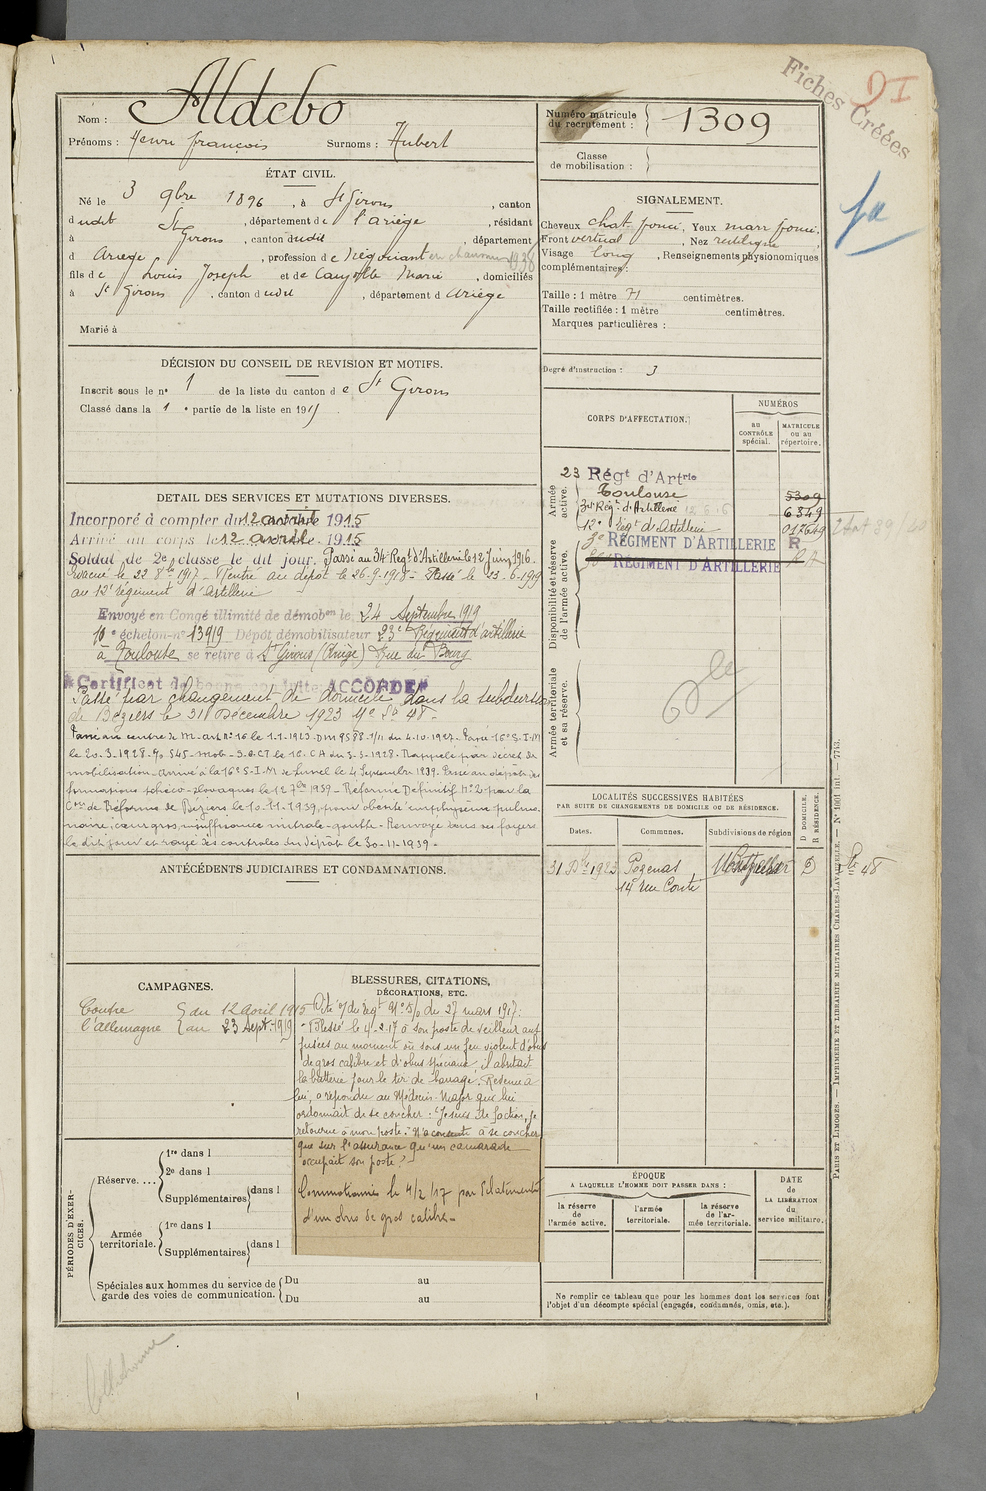 Fiches Créées
D I
fa
Nom : Aldebo
Prénoms : Henri françois Surnoms : Hubert
Numéro matricule du recrutement : 1309
Classe de mobilisation :
ÉTAT CIVIL.
Né le 3 9bre 1896, à St Girons, canton
dudit St Girons, département de l'Ariège, résidant
à canton dudit, département
d Ariège, profession de Négociant en 1938
fils de Louis Joseph et de Marie, domiciliés
à St Girons, canton dudit, département d Ariège
Marié à
SIGNALEMENT.
Cheveux chat. foncé, Yeux marr foncé,
Front vertical, Nez rectiligne
Visage long, Renseignements physionomiques
complémentaires :
Taille : 1 mètre 71 centimètres.
Taille rectifiée : 1 mètre centimètres.
Marques particulières :
Degré d'instruction : 3
DÉCISION DU CONSEIL DE REVISION ET MOTIFS.
Inscrit sous le n° 1 de la liste du canton de St Girons
Classé dans la 1 e partie de la liste en 1915.
CORPS D'AFFECTATION.
NUMÉROS
AU CONTRÔLE spécial.
MATRICULE ou au répertoire.
Armée active.
23 Régt d'Artrie
Toulouse 5309
34e Régt d'Artillerie 6349
12e Régt d'Artillerie 017649
3e RÉGIMENT D'ARTILLERIE R
RÉGIMENT D'ARTILLERIE
Disponibilité et réserve de l'armée active.
Armée territoriale et sa réserve.
DETAIL DES SERVICES ET MUTATIONS DIVERSES.
Incorporé à compter du 12 avril 1915
Arrivé au corps le 12 avril 1915
Soldat de 2e classe le dit jour. Passé au 34e Régt d'Artillerie le 12 Juin 1916.
Evacué le 22 1917 - Rentré au dépôt le 26-9-1918 - Passé le 23-6-1919
au 12e régiment d'Artillerie
Envoyé en Congé illimité de démobon le 24 Septembre 1919
10e échelon - n° 13919 Dépôt démobilisateur 23e Régiment d'artillerie
à Toulouse se retire à St Girons (Ariège) Rue du Bourg
*Certificat de bonne conduite ACCORDÉ*
Passé par changement de domicile dans la subdivision
de Béziers le 31 Décembre 1923 48 -
Passé au centre de M. art. N° 16 le 1-1-1925 - DM 9588-1/11 du 4-10-1927 - Passé 16e S.I.M
le 20-3-1928 - 545 - mob - 3.e.CT le 16. CA du 3-3-1928 - Rappelé par décret de
mobilisation - Arrivé à la 16e S-I-M de Lunel le 4 Septembre 1939. Passé au dépôt des
formations tchéco-slovaques le 1939 - Réforme Définitif N° 2 par la
Con de Réforme de Béziers le 10-11-1939, pour obésité emphysème pulmo-
naire, cœur gros, insuffisance mitrale - goutte - Renvoyé dans ses foyers
le dit jour et rayé des contrôles du Dépôt le 30-11-1939 -
LOCALITÉS SUCCESSIVES HABITÉES
PAR SUITE DE CHANGEMENTS DE DOMICILE OU DE RÉSIDENCE.
Dates. Communes. Subdivisions de région
D DOMICILE. R RÉSIDENCE.
31 Dbre 1923 Pézenas Montpellier D 48
14 rue Conti
ANTÉCÉDENTS JUDICIAIRES ET CONDAMNATIONS.
CAMPAGNES.
Contre l'Allemagne
du 12 avril 1915
au 23 Sept. 1919
BLESSURES, CITATIONS,
DÉCORATIONS, ETC.
Cité o/ du régt N° 5/0 du 27 mars 1917:
"Blessé le 4-2-17 à son poste de veilleur aux
fusées au moment où sous un feu violent d'obus
de gros calibre et d'obus spéciaux, il alertait
la batterie pour le tir de barrage. Revenu à
lui, a répondu au Médecin-Major qui lui
ordonnait de se coucher : "Je suis de faction, je
retourne à mon poste." N'a consenti à se coucher
que sur l'assurance qu'un camarade
occupait son poste."
Commotionné le 4/2/17 par éclatement
d'un obus de gros calibre -
PÉRIODES D'EXERCICES.
Réserve....
1re dans l
2e dans l
Supplémentaires dans l
Armée territoriale.
1re dans l
Supplémentaires dans l
Spéciales aux hommes du service de garde des voies de communication.
Du au
Du au
ÉPOQUE
A LAQUELLE L'HOMME DOIT PASSER DANS :
la réserve de l'armée active.
l'armée territoriale.
la réserve de l'armée territoriale.
DATE de LA LIBÉRATION du service militaire.
Ne remplir ce tableau que pour les hommes dont les services font
l'objet d'un décompte spécial (engagés, condamnés, omis, etc.).
PARIS ET LIMOGES. — IMPRIMERIE ET LIBRAIRIE MILITAIRES CHARLES-LAVAUZELLE. — N° 1001 int. — 7743.